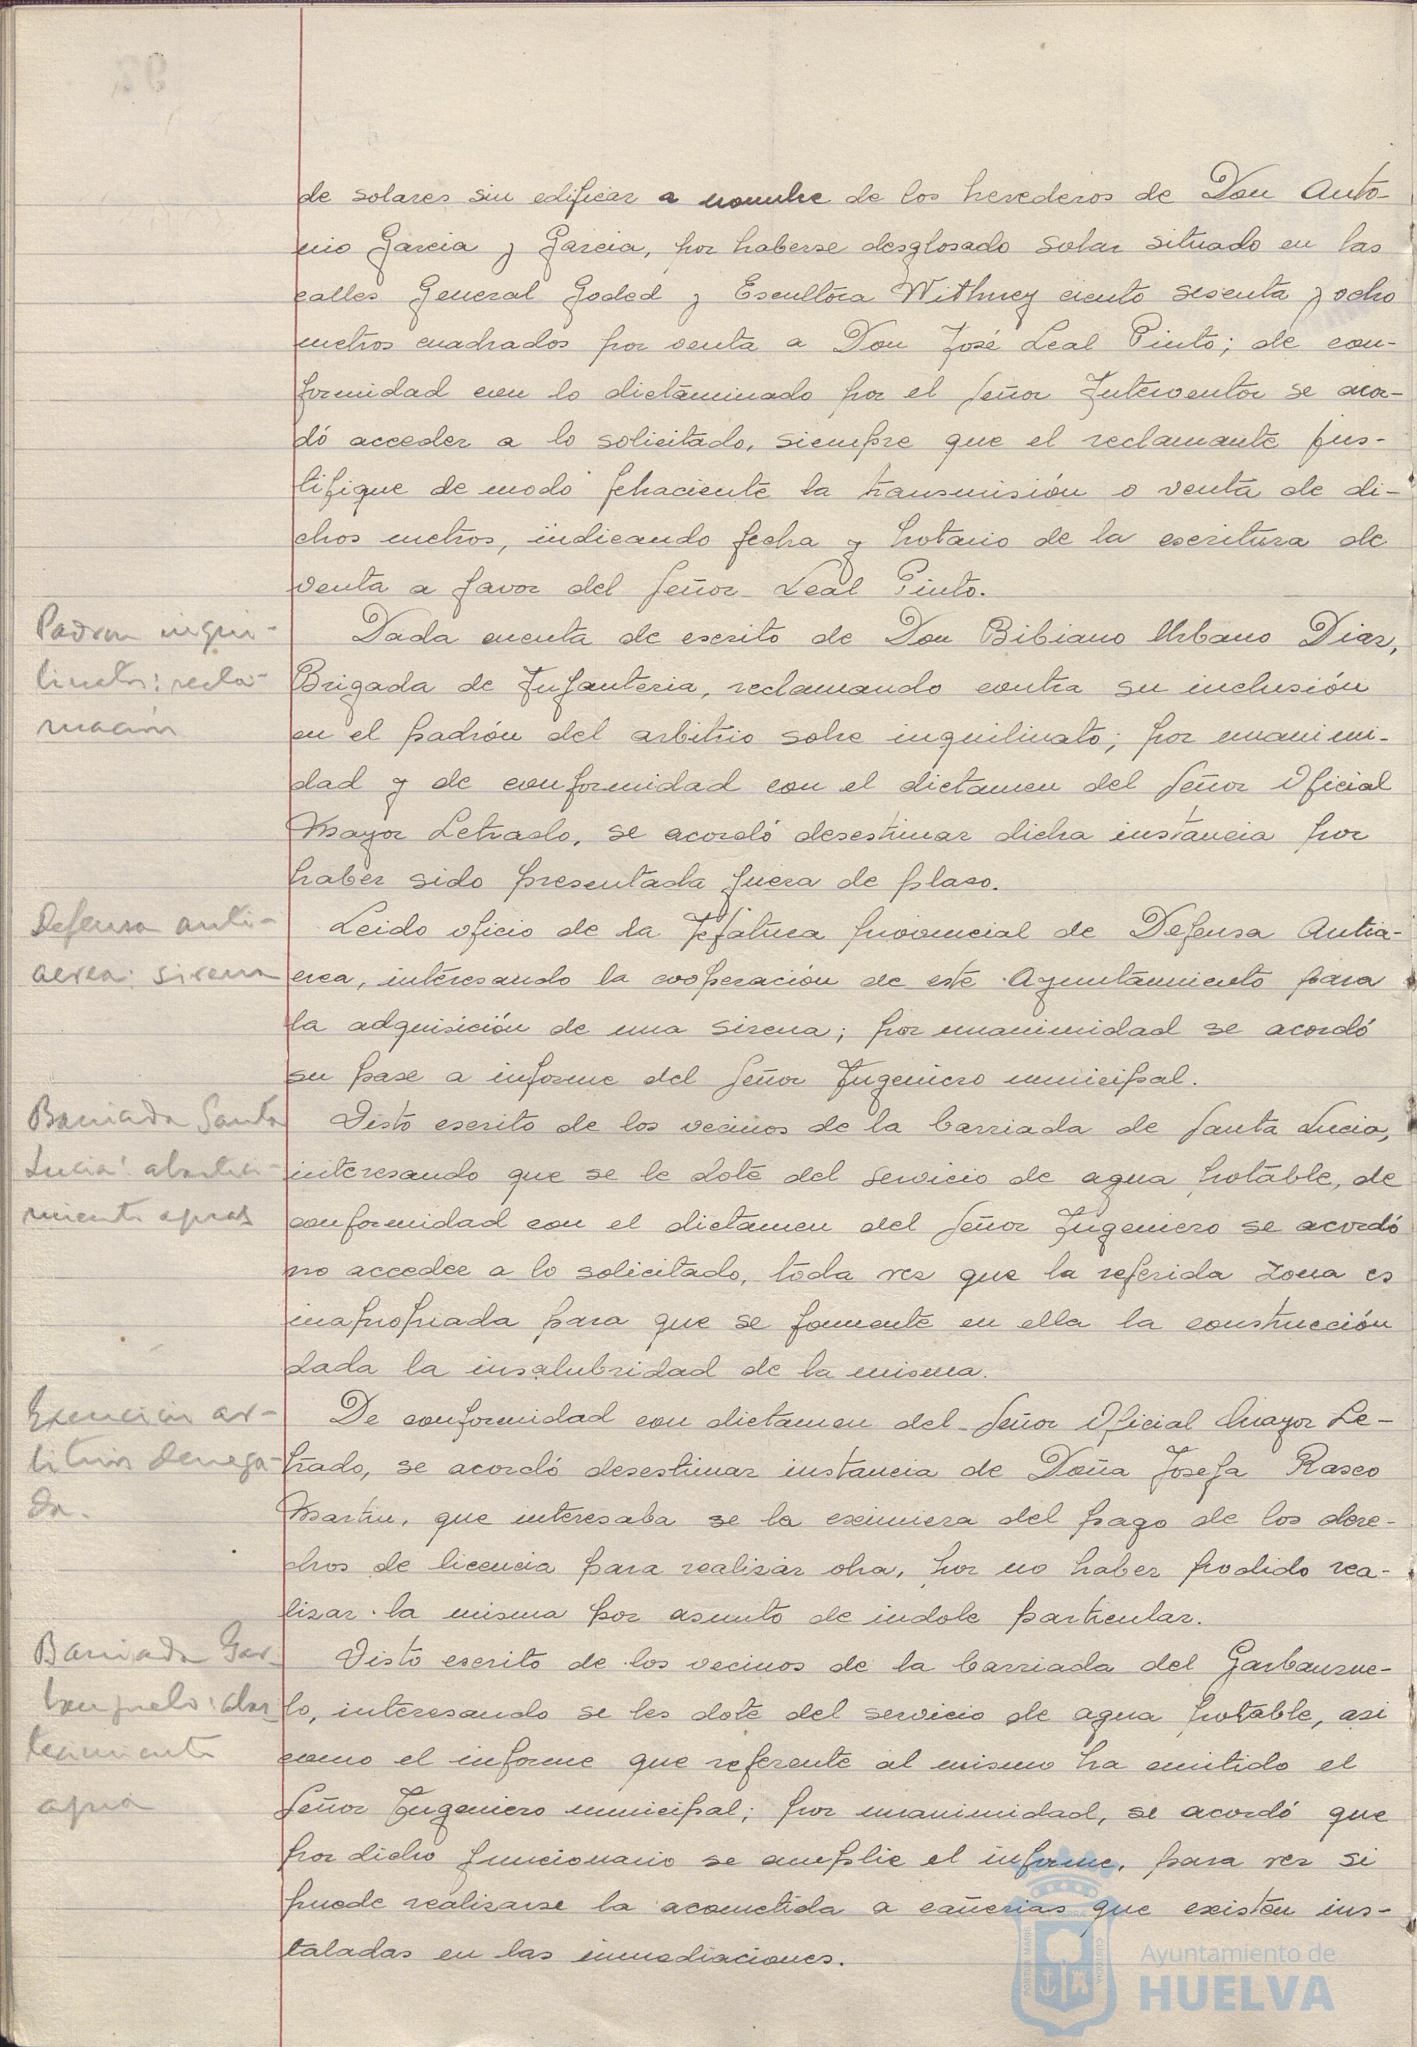 de solares sin edificar a nombre de los herederos de Don Anto-
nio Garcia y Garcia, por haberse desglosado solar situado en las
calles General Goded y Escultora Withney ciento sesenta y ocho
metros cuadrados por venta a Don José Leal Pinto; de con-
formidad con lo dictaminado por el Señor Interventor se acor-
dó acceder a lo solicitado, siempre que el reclamante jus-
tifique de modo fehaciente la transmisión o venta de di-
chos metros, indicando fecha y Notario de la escritura de
venta a favor del Señor Leal Pinto.
Padron inqui-
linatos: recla-
mación
Dada cuenta de escrito de Don Bibiano Urbano Diaz,
Brigada de Infanteria, reclamando contra su inclusión
en el padrón del arbitrio sobre inquilinato; por unanimi-
dad y de conformidad con el dictamen del Señor Oficial
Mayor Letrado, se acordó desestimar dicha instancia por
haber sido presentada fuera de plazo.
Defensa anti-
aerea: sirena
Leido oficio de la Jefatura provincial de Defensa Antia-
erea, interesando la cooperación de este Ayuntamiento para
la adquisición de una sirena; por unanimidad se acordó
su pase a informe del Señor Ingeniero municipal.
Barriada Santa
Lucia: abasteci-
miento aguas
Visto escrito de los vecinos de la barriada de Santa Lucia,
interesando que se le dote del servicio de agua potable, de
conformidad con el dictamen del Señor Ingeniero se acordó
no acceder a lo solicitado, toda vez que la referida zona es
inapropiada para que se fomente en ella la construcción
dada la insalubridad de la misma.
Exencion ar-
bitrios denega-
da.
De conformidad con dictamen del Señor Oficial Mayor Le-
trado, se acordó desestimar instancia de Doña Josefa Rasco
Martin, que interesaba se la eximiera del pago de los dere-
chos de licencia para realizar obra, por no haber podido rea-
lizar la misma por asunto de indole particular.
Barriada Gar-
banzuelo: abas
tecimiento
agua
Visto escrito de los vecinos de la barriada del Garbanzue-
lo, interesando se les dote del servicio de agua potable, asi
como el informe que referente al mismo ha emitido el
Señor Ingeniero municipal; por unanimidad, se acordó que
por dicho funcionario se amplie el informe, para ver si
puede realizarse la acometida a cañerias que existen ins-
taladas en las inmediaciones.
Ayuntamiento de
HUELVA